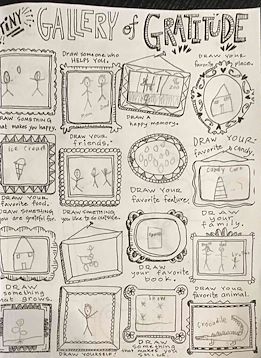 TINY GALLERY of GRATITUDE
DRAW SOMETHING
that makes you happy.
Draw someone who
HELPS YOU.
DRAW A
happy memory.
DRAW YOUR
favorite place.
Ice Cream
DRAW YOUR
favorite food.
DRAW YOUR
friends.
DRAW YOUR
favorite feature.
DRAW YOUR
favorite candy.
Candy Corn
DRAW SOMETHING
you are grateful for.
DRAW SOMETHING
you like to do outside.
DRAW
your favorite
book.
DRAW
your
family.
DRAW
something
that grows.
DRAW YOURSELF!
DRAW
something
that makes you
DRAW YOUR
favorite animal.
Crocodile